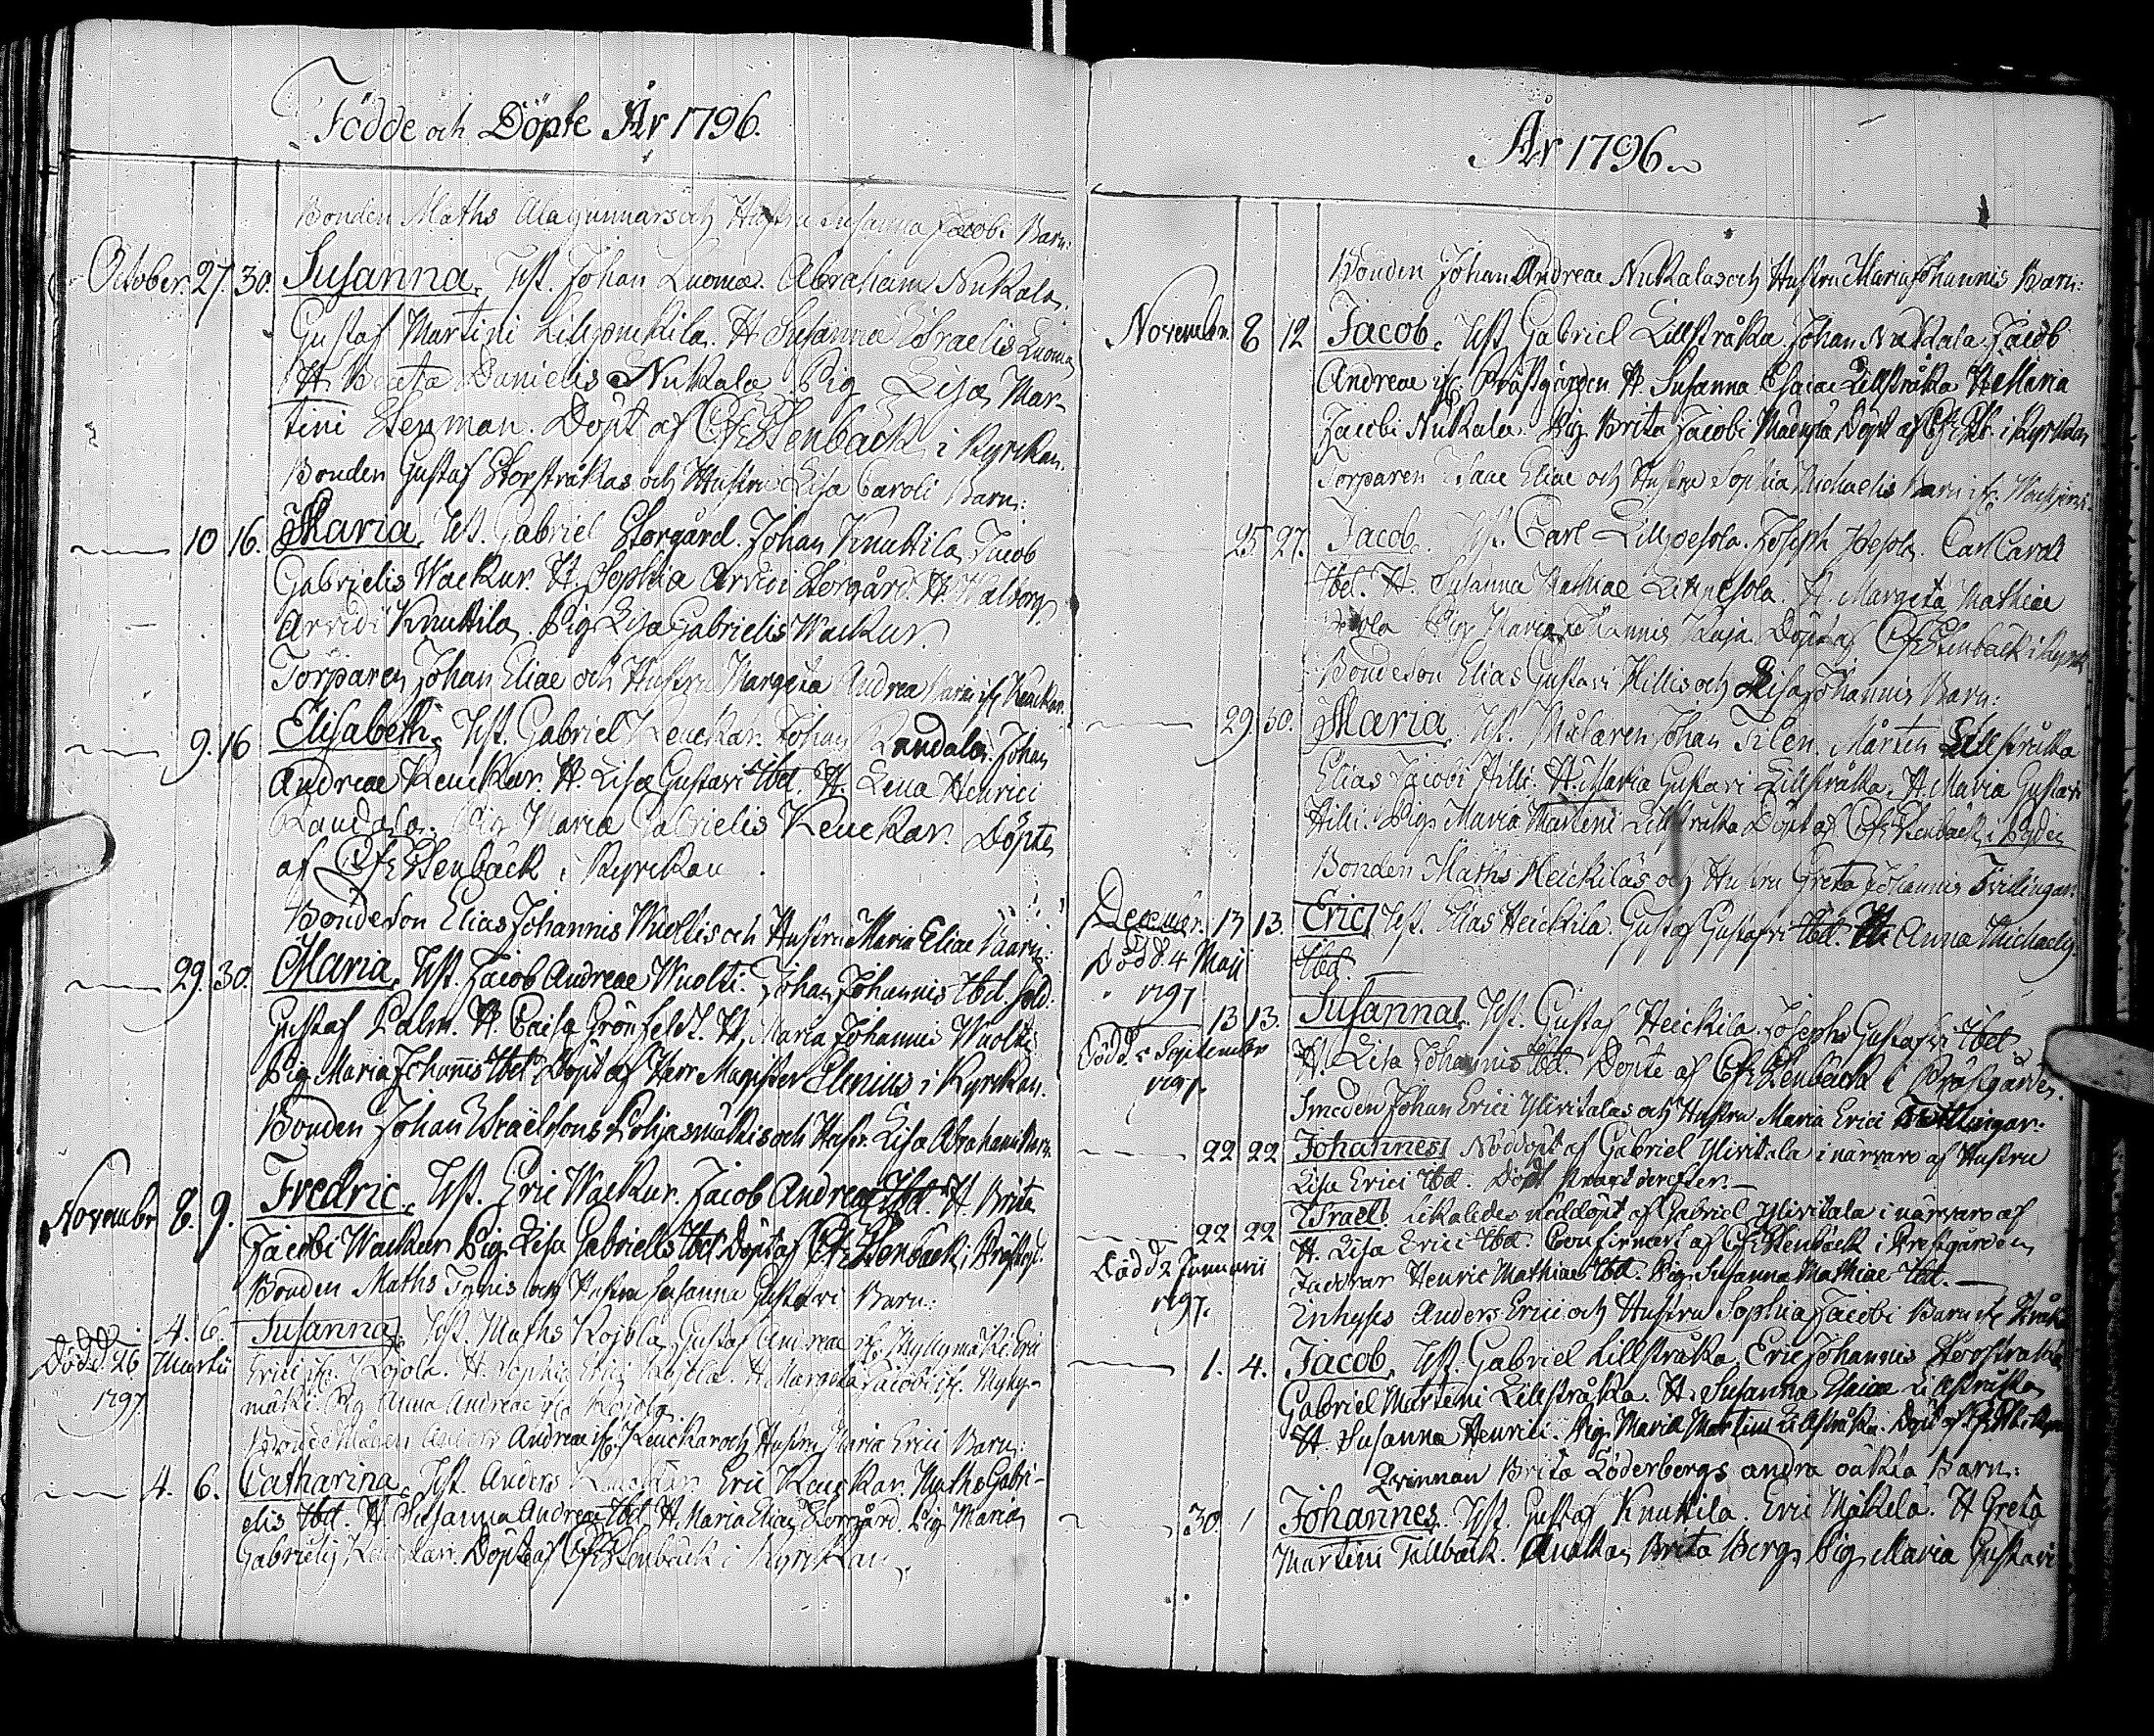 Födde och Döpte År 1796.
Bonden Maths Alagunnars och Hustru Susanna Jacobi Barn:
October. 27. 30. Susanna. Test. Johan Luoma. Abraham Nukala.
Gustaf Martini H. Susanna Esraelis Luoma
H. Beata Danielis Nukala Pig Lisa Mar-
tini Stenman. Döpt af Stenbäck i Kyrckan.
Bonden Gustaf Storstråkas och Hustru Lisa Caroli Barn:
10 16. Maria. Test. Gabriel Storgård. Johan Knuttila Jacob
Gabrielis Wackur. H. Sophia Arvidi Storgård. H. Walborg
Arvidi Knuttila. Pig Lisa Gabrielis Wackur.
Torparen Johan Eliae och Hustru Margeta Andreae Barn
9. 16 Elisabeth. Test. Gabriel Keuckar. Johan Randala. Johan
Andreae Keuckar. H. Lisa Gustavi Ibd. H. Lena Henrici
Randala. Pig Maria Gabrielis Keuckar. Döpte
af Stenbäck i Kyrckan
Bondeson Elias Johannis Wuoltis och Hustru Maria Eliae Barn:
29. 30. Maria. Test. Jacob Andreae Wuolti. Johan Johannis Ibd. Sold:
Gustaf Palm. H. Caisa Grönfeldt. H. Maria Johannis Wuolti
Pig Maria Johannis Ibd. Döpt af Herr Magister Elenius i Kyrckan.
Bonden Johan Israëlsons och Hustr. Lisa Abrahami Barn.
Novembr 8. 9. Fredric. Test. Eric Wackur. Jacob Andreae Ibd. H. Brita
Jacobi Wackur Pig. Lisa Gabrielis Ibd. Döpt af Stenbäck i Prästgd.
Bonden Maths och Hustru Susanna Gustavi Barn:
4. 6. Susanna. Test. Maths Kojola Gustaf Andreae
Död d. 26 Martii
1797
Erici Kojola. H. Sophia Erici H. Margeta Jacobi
mäki. Pig Anna Andreae Kojola
Anders Andreae Keuckar och Hustru Maria Erici Barn:
4. 6. Catharina. Test. Anders Keuckar Eric Keuckar. Maths Gabri-
elis Ibd. H Susanna Andreae Ibd H. Maria Eliae Storgård. Pig Maria
Gabrielis Keuckar. Döpte af Stenbäck i Kyrckan.
År 1796.
Bonden Johan Andreae Nukalas och Hustru Maria Johannis Barn:
November. 8 12 Jacob. Test. Gabriel Lillstråka. Johan Nukala. Jacob
Andreae Prästgården. H. Susanna Esaiae Lillstråka H. Maria
Jacobi Nukala. Pig Brita Jacobi Mäenpä Döpt af i Kyrckan
Torparen Isaac Eliae och Hustru Sophia Michaelis Barn
25 27. Jacob. Test. Carl Joseph Carl Caroli
Ibd. H. Susanna Mathiae H. Margeta Mathiae
Pig Maria Johannis Döpt af Stenbäck i Kyrck
Bondeson Elias Gustavi Hillis och Lisa Johannis Barn:
29. 30. Maria. Test. Målaren Johan Tilen. Mårten Lillstråka
Elias Jacobi Hilli. H. Maria Gustavi Lillstråka. H. Maria Gustavi
Hilli. Pig Maria Martini Lillstråka Döpt af Stenbäck i
Bonden Maths Heickiläs och Hustru Greta Johannis Tvillingar.
Decembr. 13 13. Eric Test. Elias Heickila. Gustaf Gustavi Ibd. H. Anna Michaelis
Död d. 4 Maji
1797
Ibd.
13 13. Susanna. Test. Gustaf Heickila. Joseph Gustavi Ibd
Död d. 5 September
1797.
H. Lisa Johannis Ibd. Döpte af Stenbäck i Prästgården.
Smeden Johan Erici Ylivitalas och Hustru Maria Erici Tvillingar.
22 22 Johannes Nöddöpt af Gabriel Ylivitala i närvaro af Hustru
Lisa Erici Ibd. Död straxt derefter.
22 22 Israel. likaledes nöddöpt af Gabriel Ylivitala i närvaro af
H. Lisa Erici Ibd. Confirmert af Stenbäck i Prestgården
Död d 2 Januarii
1797.
faddrar Henric Mathiae Ibd. Pig Susanna Mathiae Ibd.
Inhyses Anders Erici och Hustru Sophia Jacobi Barn
1. 4. Jacob. Test. Gabriel Lillstråka Eric Johannis Storstråka
Gabriel Martini Lillstråka. H. Susanna Esaiae Lillstråka
H. Susanna Henrici. Pig Maria Martini Lillstråka. Döpt af
Qvinnan Brita Söderbergs andra oäkta Barn:
30. 1 Johannes. Test. Gustaf Knuttila. Eric Mäkelä. H Greta
Martini Tallbäck. Änckan Brita Berg. Pig Maria Gustavi